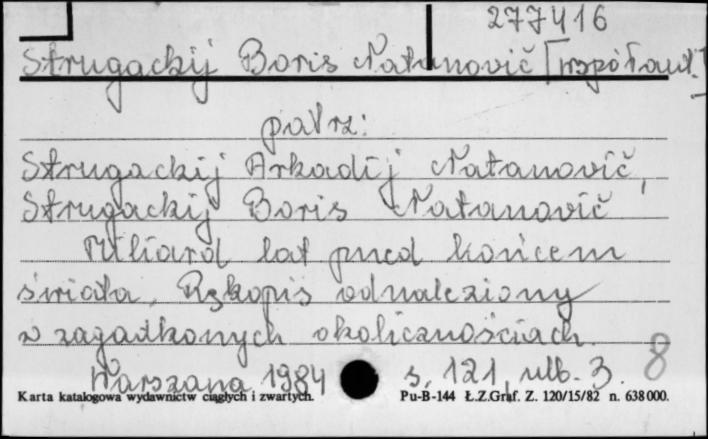 277416
Strugackij Boris Natanovič [współaut.]
patrz:
Strugackij Arkadij Natanovič,
Strugackij Boris Natanovič
Miliard lat przed końcem
świata. Rękopis odnaleziony
w zagadkonych okolicznościach.
Warszawa 1984 s. 121, nlb. 3. 8
Karta katalogowa wydawnictw ciągłych i zwartych. Pu-B-144 Ł.Z.Graf. Z. 120/15/82 n. 638000.